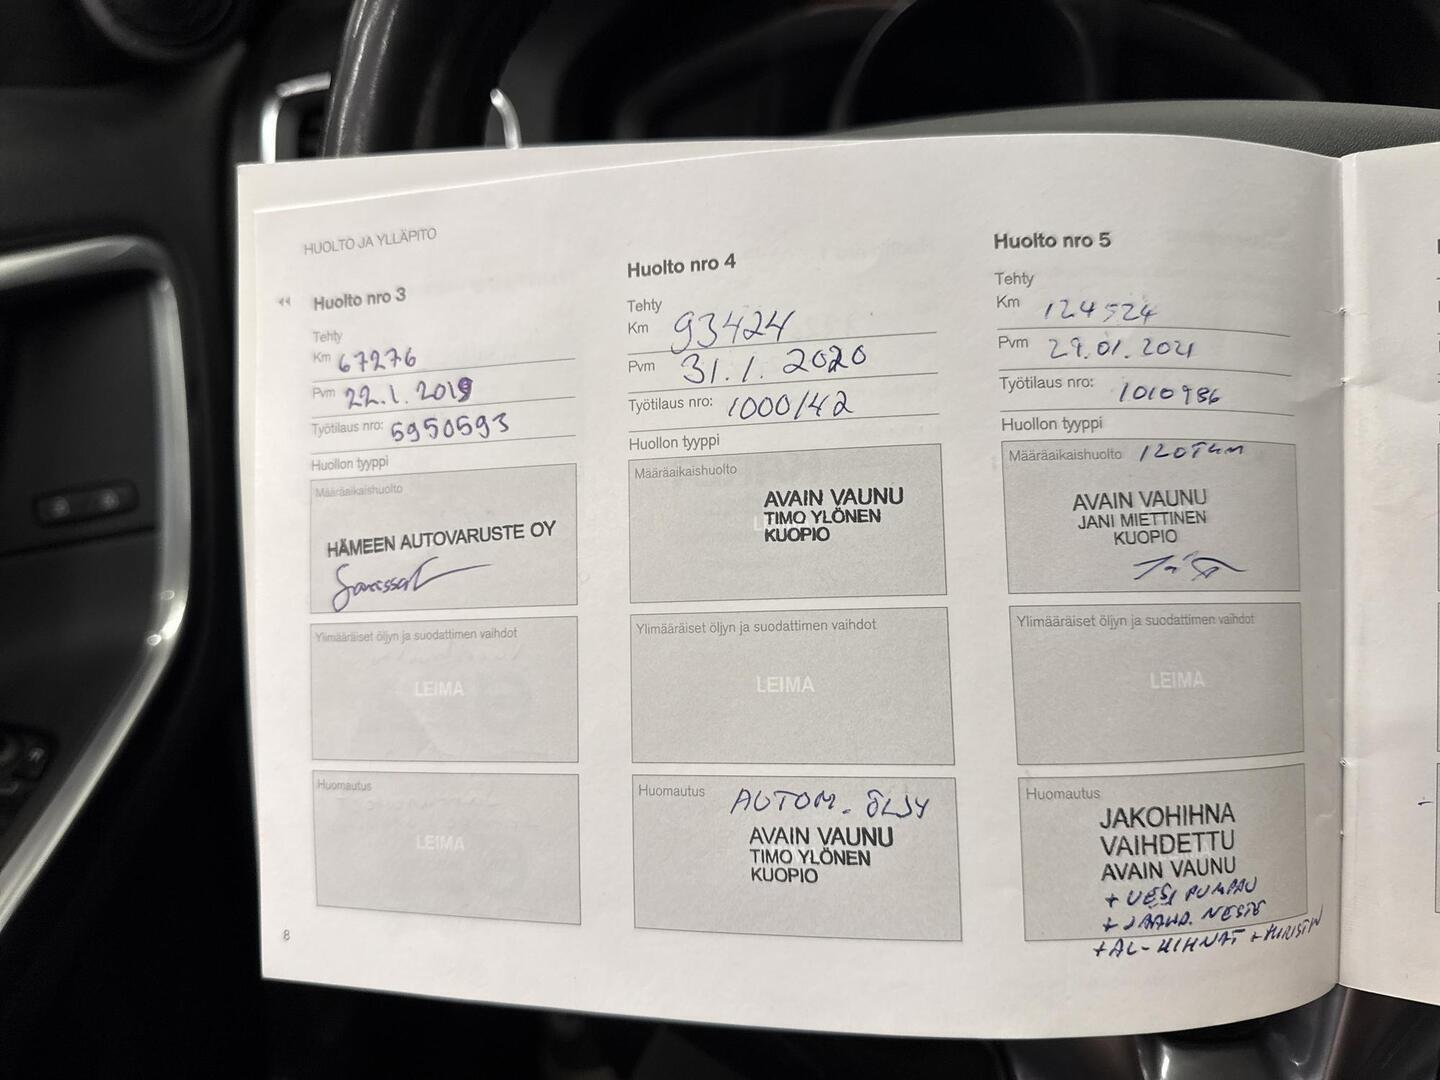 HUOLTO JA YLLÄPITO
Huolto nro 3
Tehty
Km 67276
Pvm 22.1.2019
Työtilaus nro: 5950593
Huollon tyyppi
Määräaikaishuolto
HÄMEEN AUTOVARUSTE OY
Ylimääräiset öljyn ja suodattimen vaihdot
LEIMA
Huomautus
LEIMA
8
Huolto nro 4
Tehty
Km 93424
Pvm 31.1.2020
Työtilaus nro: 1000142
Huollon tyyppi
Määräaikaishuolto
AVAIN VAUNU
TIMO YLÖNEN
KUOPIO
Ylimääräiset öljyn ja suodattimen vaihdot
LEIMA
Huomautus AUTOM. ÖLJY
AVAIN VAUNU
TIMO YLÖNEN
KUOPIO
Huolto nro 5
Tehty
Km 124524
Pvm 29.01.2021
Työtilaus nro: 1010986
Huollon tyyppi
Määräaikaishuolto 120TKM
AVAIN VAUNU
JANI MIETTINEN
KUOPIO
Ylimääräiset öljyn ja suodattimen vaihdot
LEIMA
Huomautus
JAKOHIHNA
VAIHDETTU
AVAIN VAUNU
+ VESIPUMPPU
+ JÄÄHD. NESTE
+ AL-HIHNAT + KIRISTIN